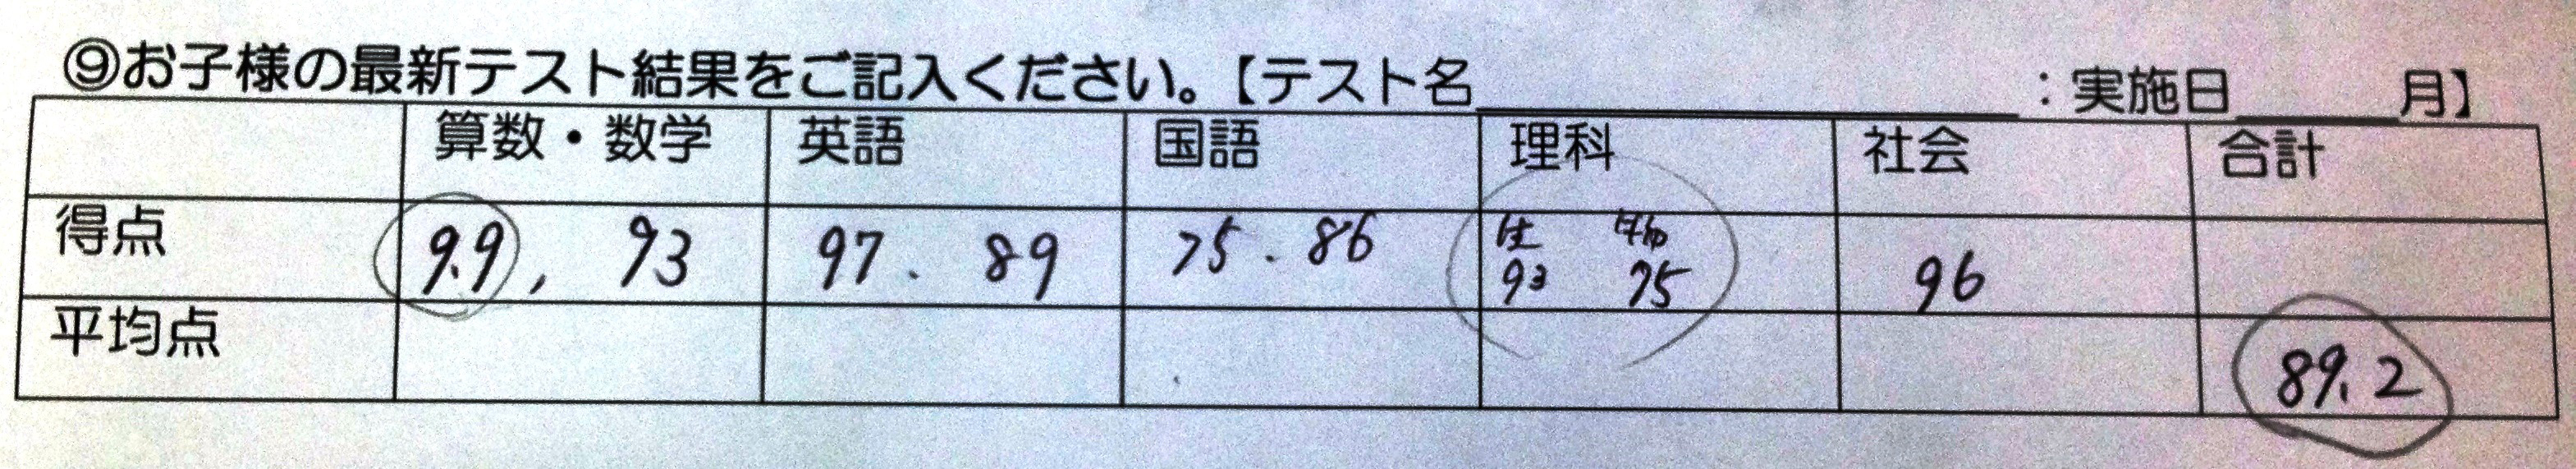 ⑨お子様の最新テスト結果をご記入ください。【テスト名　　　　　　：実施日　　　月】
算数・数学 英語 国語 理科 社会 合計
得点 9.9, 93 97. 89 75. 86 96
93 75
平均点 89.2